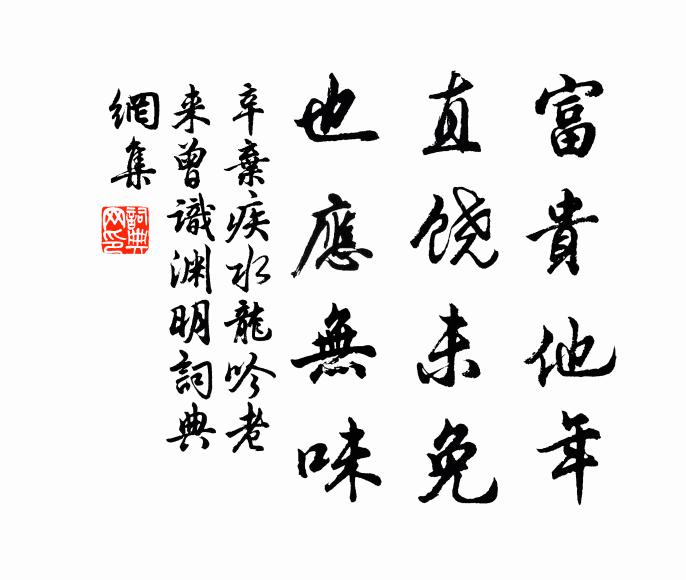 富貴他年
直饶未免
也應無味
辛棄疾水龍吟老
来曾識渊明詞典
網集
詞典网印